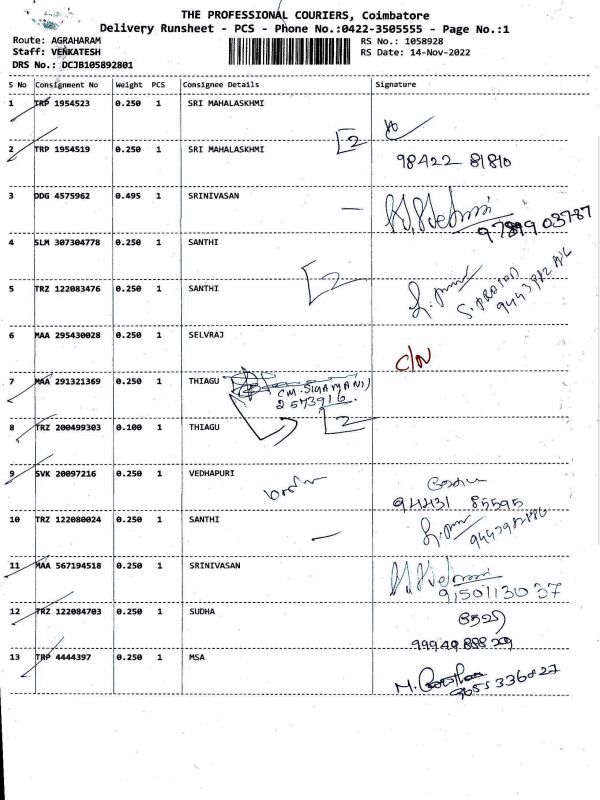 THE PROFESSIONAL COURIERS, Coimbatore
Delivery Runsheet - PCS - Phone No.:0422-3505555 - Page No.:1
Route: AGRAHARAM
RS No.: 1058928
Staff: VENKATESH
RS Date: 14-Nov-2022
DRS No.: DCJB105892801
S No Consignment No Weight PCS Consignee Details Signature
1 TRP 1954523 0.250 1 SRI MAHALASKHMI
2 TRP 1954519 0.250 1 SRI MAHALASKHMI 2
98422 81810
3 DDG 4575962 0.495 1 SRINIVASAN
97899 03787
4 SLM 307304778 0.250 1 SANTHI
5 TRZ 122083476 0.250 1 SANTHI 2
6 MAA 295430028 0.250 1 SELVRAJ
C/N
7 MAA 291321369 0.250 1 THIAGU
2573916.
8 TRZ 200499303 0.100 1 THIAGU 2
9 SVK 20097216 0.250 1 VEDHAPURI
94431 85595
10 TRZ 122080024 0.250 1 SANTHI
11 MAA 567194518 0.250 1 SRINIVASAN
9150113037
12 TRZ 122084703 0.250 1 SUDHA
13 TRP 4444397 0.250 1 MSA